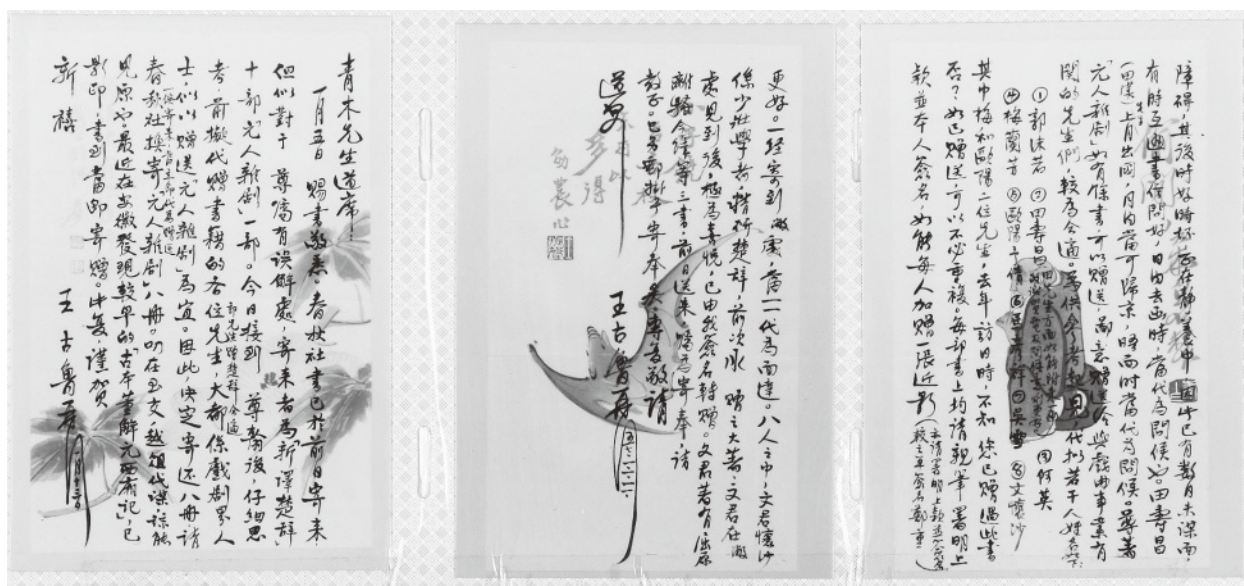 障碍，其後時好時坏，正在靜養中，因此已有數月未謀面，
有時互通書信問好，日内去函時，當代為問候也。田壽昌
（田漢）先生上月出國，月内當可歸京，晤面時當代為問候。尊著
「元人雜劇」如有餘書可以贈送，鄙意贈送給與戲曲事業有
関的先生們，較為合適。為供參考起見，代擬若干人姓名如下
①郭沫若 ②田壽昌 ③阿英
④梅蘭芳 ⑤歐陽予倩 ⑥ ⑦吳雪 ⑧文懷沙
其中梅和歐陽二位先生，去年訪日時，不知 您已贈過此書
否？如已贈送，可以不必重複。每部書上均請親筆署明上
款並本人簽名，如能每人加贈一張近影（亦請署明上款並簽名 較之單簽名鄭重）
更好。一經寄到 敝處，當一一代為面達。八人之中，文君懷沙
係少壯學者，精研楚辭，前次承 贈之大著，文君在敝
處見到後，極為喜悅，已由我簽名轉贈。文君著有屈原
離騷今繹等三書，前日送來，囑為寄奉，請
教正。已另郵掛號寄奉矣。專復敬請
道安
王古魯再拜
青木先生道席：
一月五日 賜書敬悉。春秋社書已於前日寄來，
但似對于 尊囑有误解處，寄來者為「新譯楚辞」
十部，「元人雜劇」一部。今日接到 尊翰後，仔細思
考，前擬代贈書籍的各位先生，大都係戲劇界人
士，似以贈送「元人雜劇」為宜。因此，决定寄还八冊，請
春秋社換寄「元人雜劇」八冊。叨在至交，越俎代谋，諒能
見原也。最近在安徽發現較早的「古本董解元西廂記」，已
影印，書到當即寄贈。此复，謹賀
新禧
王古魯再拜
一月十三日